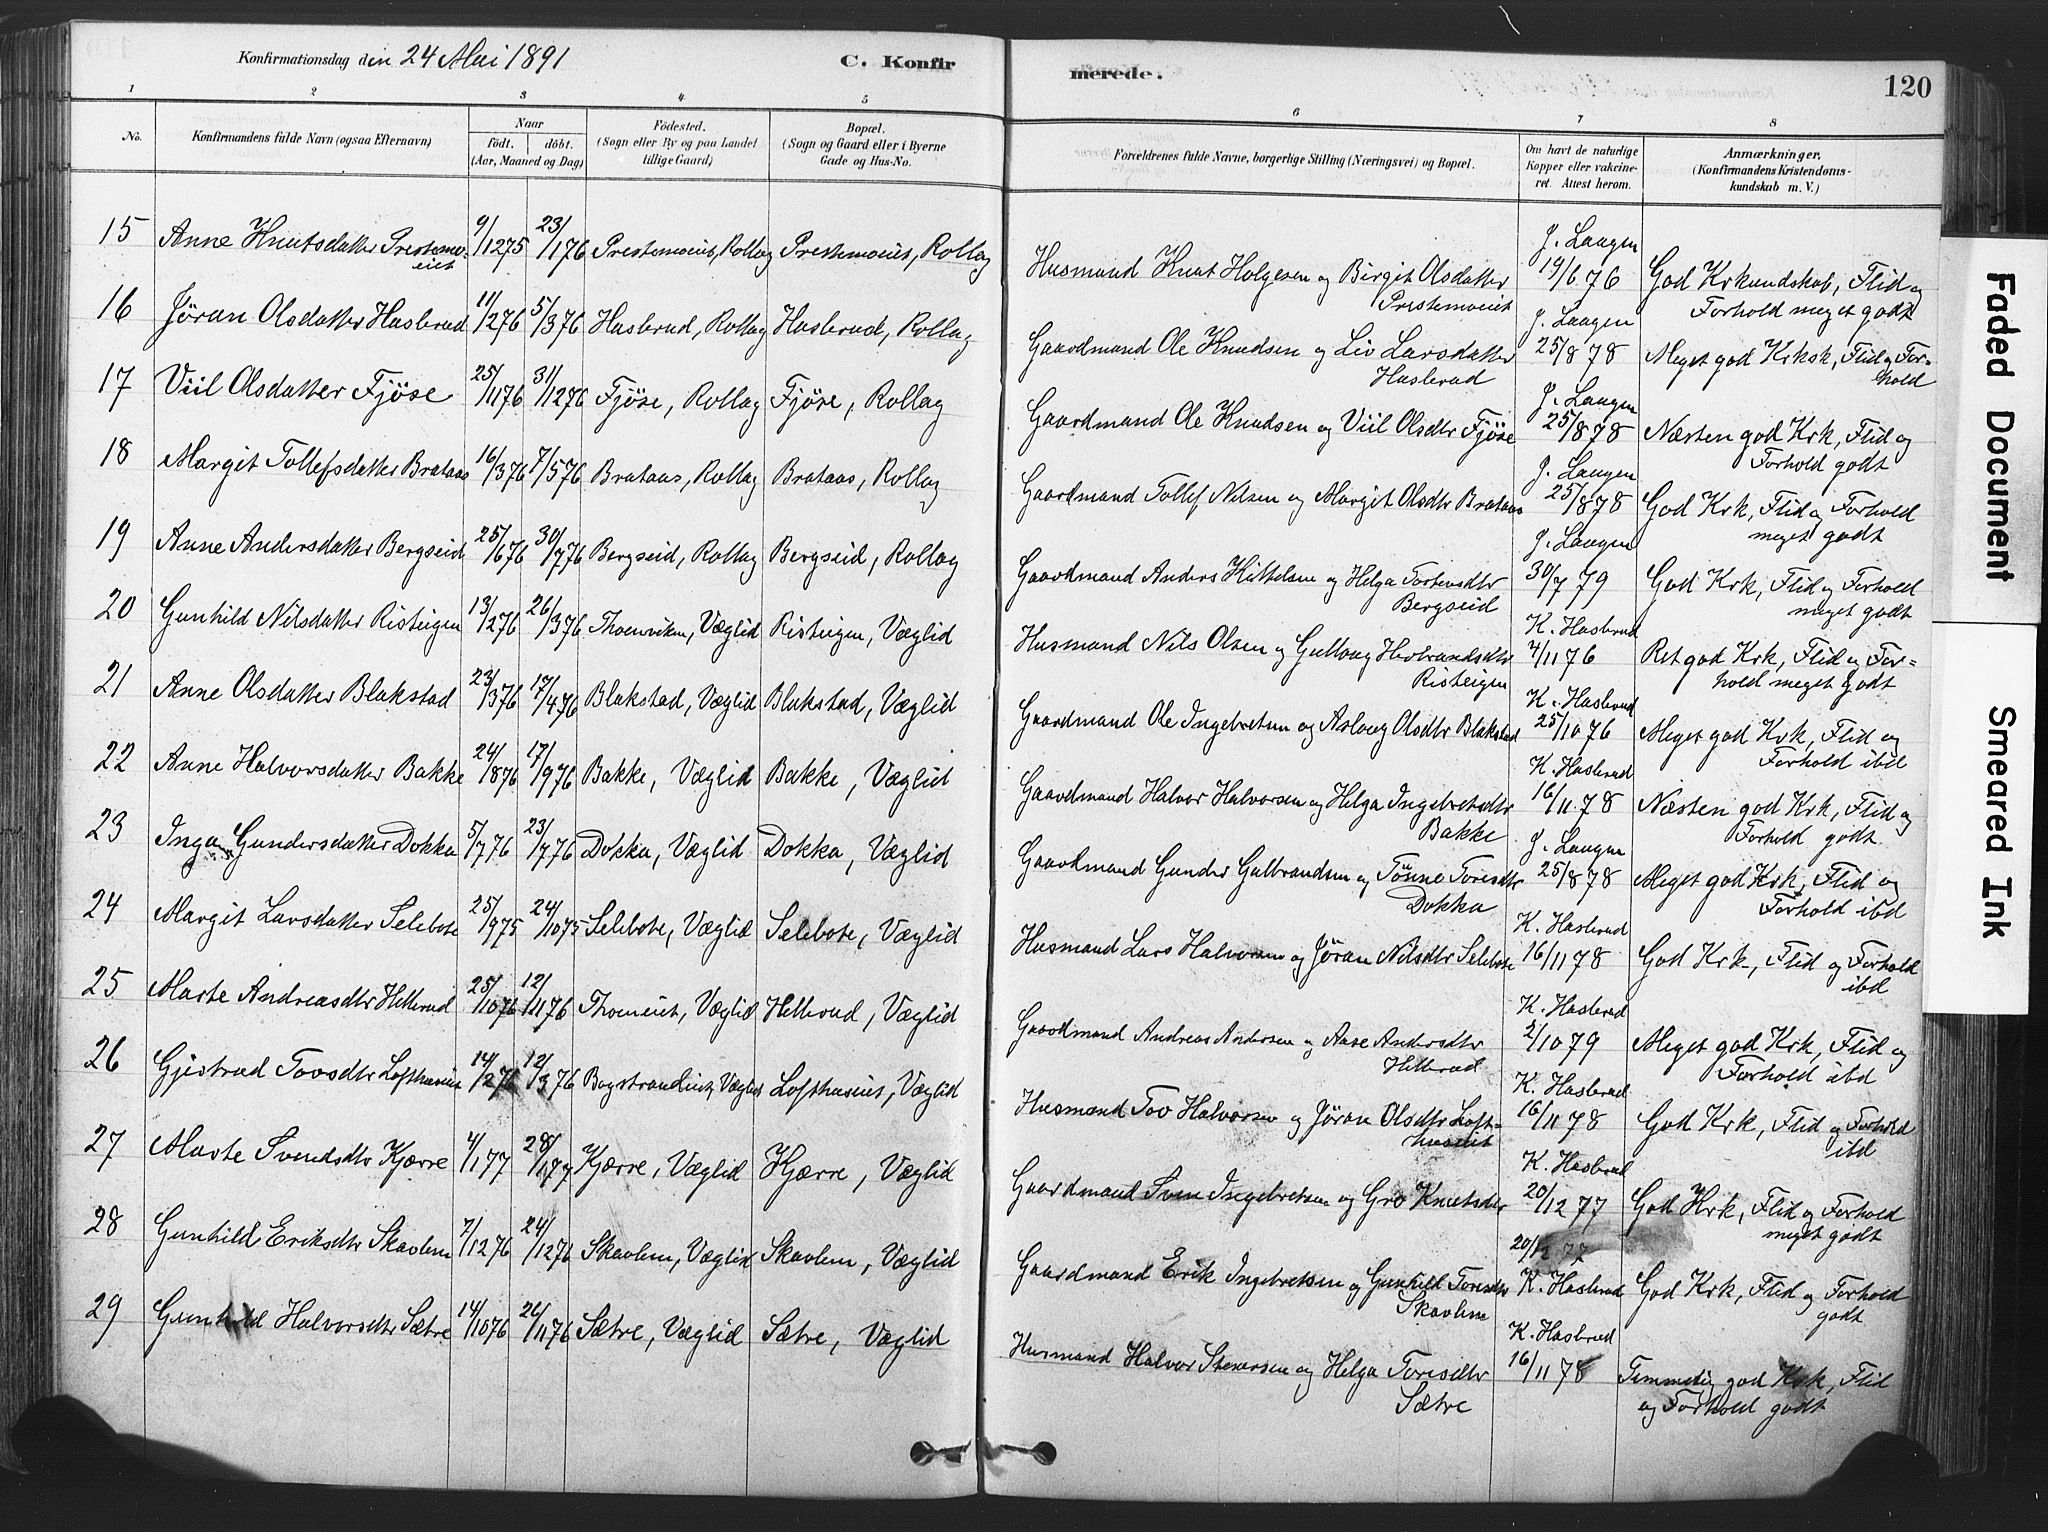 Konfirmationsdag den 24 Mai 1891
C. Konfir
merede.
120
1 2 3 4 5 6 7 8
No.
Konfirmandens fulde Navn (ogsaa Efternavn)
Naar
født. døbt.
(Aar, Maaned og Dag)
Fødested.
(Sogn eller By og paa Landet
tillige Gaard)
Bopæl.
(Sogn og Gaard eller i Byerne
Gade og Hus-No.
Forældrenes fulde Navne, borgerlige Stilling (Næringsvei) og Bopæl.
Om havt de naturlige
Kopper eller vakcine-
ret. Attest herom.
Anmærkninger.
(Konfirmandens Kristendoms-
kundskab m. V.)
15 Anne Knutsdatter Prestemo- 9/1275 23/176 Prestemoeiet, Rollag Prestemoeiet, Rollag
eiet
Husmand Knut Holgesen og Birgit Olsdatter
Prestemoeiet
J. Laagen
19/6.76
God Krkundskab, Flid og
Forhold meget godt
16 Jøran Olsdatter Hasberud 11/276 5/376 Hasberud, Rollag Hasberud, Rollag
Gaardmand Ole Knudsen og Liv Larsdatter
Hasberud
J. Laagen
25/878
Meget god Krksk, Flid og For-
hold
17 Viil Olsdatter Fjöse 25/1176 31/1276 Fjöse, Rollag Fjöse, Rollag
Gaardmand Ole Knudsen og Viil Olsdtr Fjöse
J. Laagen
25/878
Næsten god Krk, Flid og
Forhold godt
18 Margit Tollefsdatter Brataas 16/376 7/576 Brataas, Rollag Brataas, Rollag
Gaardmand Tollef Nilsen og Margit Olsdtr Brataas
J. Laagen
25/878
God Krk, Flid og Forhold
meget godt
19 Anne Andersdatter Bergseid 25/676 30/776 Bergseid, Rollag Bergseid, Rollag
Gaardmand Anders Kittelsen og Helga Torstensdtr
Bergseid
J. Laagen
30/7 79
God Krk, Flid og Forhold
meget godt
20 Gunhild Nilsdatter Risteigen 13/276 26/376 Thoenviken, Væglid Risteigen, Væglid
Husmand Nils Olsen og Gullaug Herbrandsdtr
Risteigen
K. Hasberud
4/1176
Ret god Krk, Flid og For-
hold meget godt
21 Anne Olsdatter Blakstad 23/376 17/476 Blakstad, Væglid Blakstad, Væglid
Gaardmand Ole Ingebretsen og Aslaug Olsdtr Blakstad
K. Hasberud
25/1076
Meget god Krk, Flid og
Forhold ibd
22 Anne Halvorsdatter Bakke 24/876 17/976 Bakke, Væglid Bakke, Væglid
Gaardmand Halvor Halvorsen og Helga Ingebretsdtr
Bakke
K. Hasberud
16/11.78
Næsten god Krk, Flid og
Forhold godt
23 Inga Gundersdatter Dokka 5/776 23/776 Dokka, Væglid Dokka, Væglid
Gaardmand Gunder Gulbrandsen og Tönne Toresdtr
Dokka
J. Laagen
25/878
Meget god Krk, Flid og
Forhold ibd
24 Margit Larsdatter Selebote 25/975 24/1075 Selebote, Væglid Selebote, Væglid
Husmand Lars Halvorsen og Jøran Nilsdtr Selebote
K. Hasberud
16/1178
God Krk, Flid og Forhold
ibd
25 Marte Andreasdtr Hellerud 25/1076 12/1176 Thomeiet, Væglid Hellerud, Væglid
Gaardmand Andreas Andersen og Aase Andersdtr
Hellerud
K. Hasberud
2/1079
Meget god Krk, Flid og
Forhold ibd
26 Gjertrud Tovsdtr Lofthuseiet 14/276 12/376 Bagstrandeiet, Væglid Lofthuseiet, Væglid
Husmand Tov Halvorsen og Jøran Olsdtr Loft-
huseiet
K. Hasberud
16/1178
God Krk, Flid og Forhold
ibd
27 Marte Svendsdtr Kjærre 4/177 28/177 Kjærre, Væglid Kjærre, Væglid
Gaardmand Sven Ingebretsen og Gro Knutsdtr
K. Hasberud
20/1277
God Krk, Flid og Forhold
meget godt
28 Gunhild Eriksdtr Skavlem 7/1276 24/1276 Skavlem, Væglid Skavlem, Væglid
Gaardmand Erik Ingebretsen og Gunhild Toresdtr
Skavlem
20/12 77
K. Hasberud
God Krk, Flid og Forhold
godt
29 Gunhild Halvorsdtr Sætre 14/1076 26/1176 Sætre, Væglid Sætre, Væglid
Husmand Halvor Stenersen og Helga Toresdtr
Sætre
K. Hasberud
16/1178
Temmelig god Krk, Flid
og Forhold godt
Faded Document
Smeared Ink